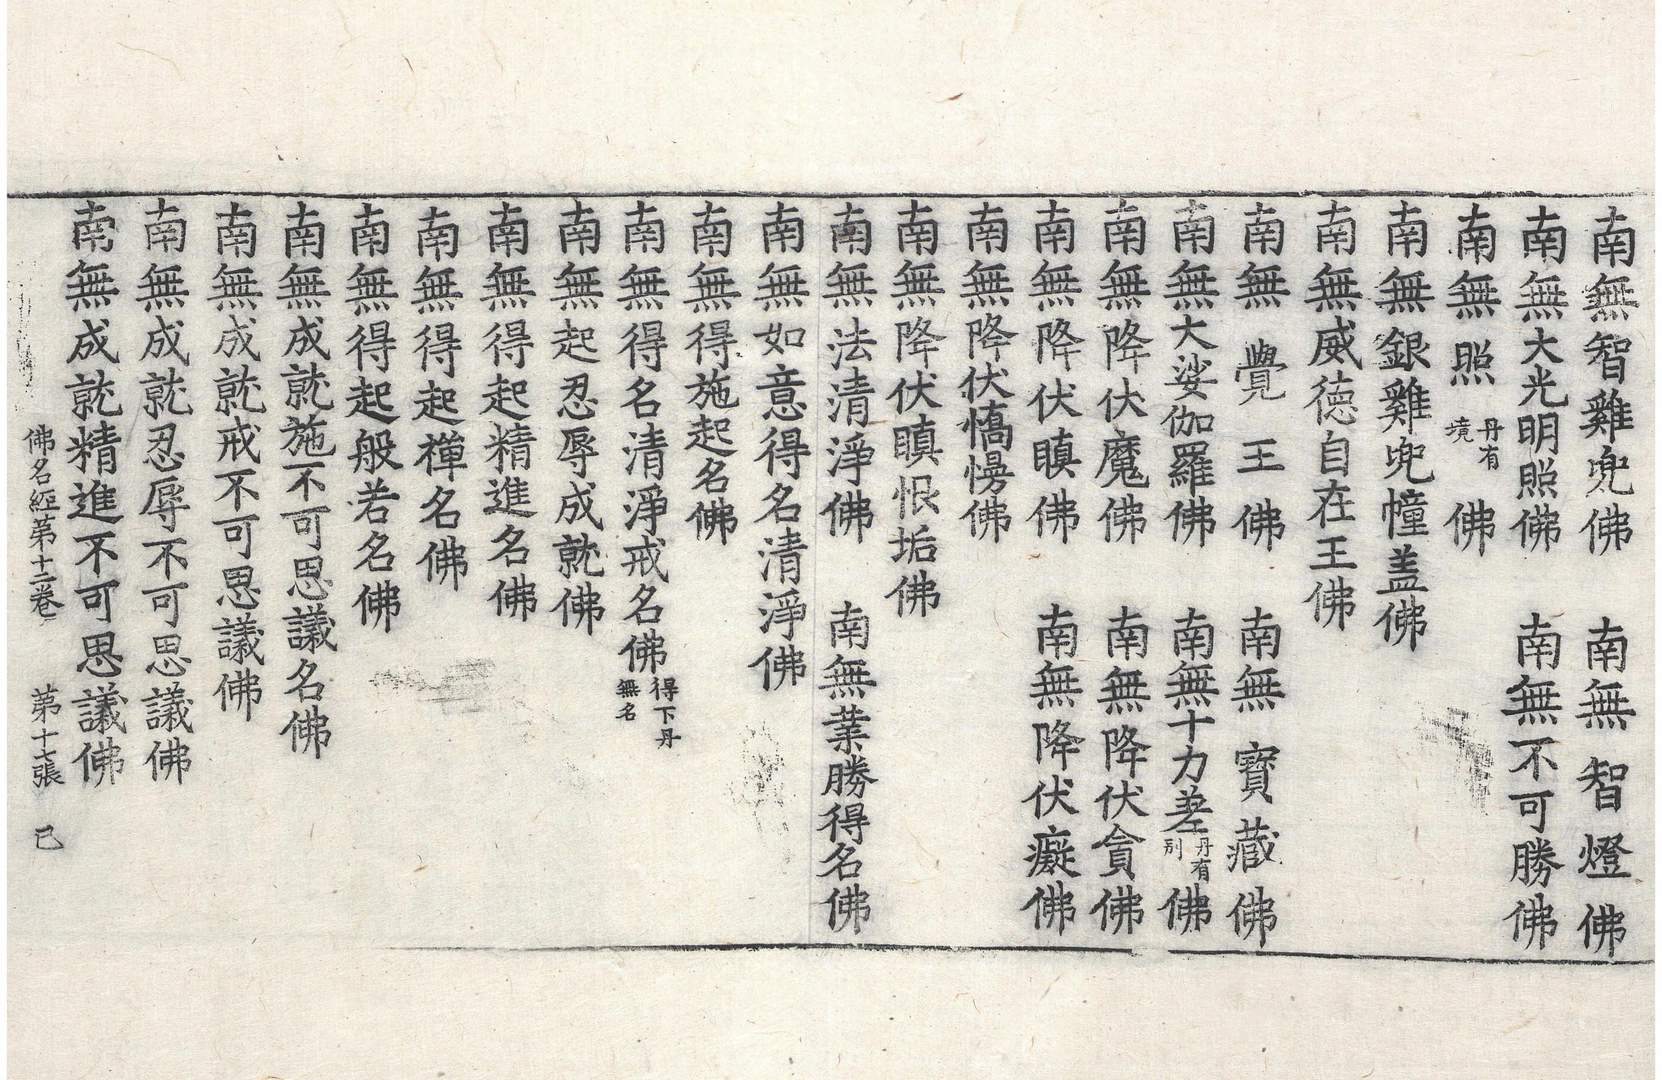 南無智雞兜佛　南無智燈佛
南無大光明照佛　南無不可勝佛
南無照丹有境佛
南無銀雞兜幢盖佛
南無威德自在王佛
南無覺王佛　南無寶藏佛
南無大娑伽羅佛　南無十力差丹有别佛
南無降伏魔佛　南無降伏貪佛
南無降伏瞋佛　南無降伏癡佛
南無降伏憍慢佛
南無降伏瞋恨垢佛
南無法清淨佛　南無業勝得名佛
南無如意得名清淨佛
南無得施起名佛
南無得名清淨戒名佛得下丹無名
南無起忍辱成就佛
南無得起精進名佛
南無得起禪名佛
南無得起般若名佛
南無成就施不可思議名佛
南無成就戒不可思議佛
南無成就忍辱不可思議佛
南無成就精進不可思議佛
佛名經第十二卷　第十七張　己